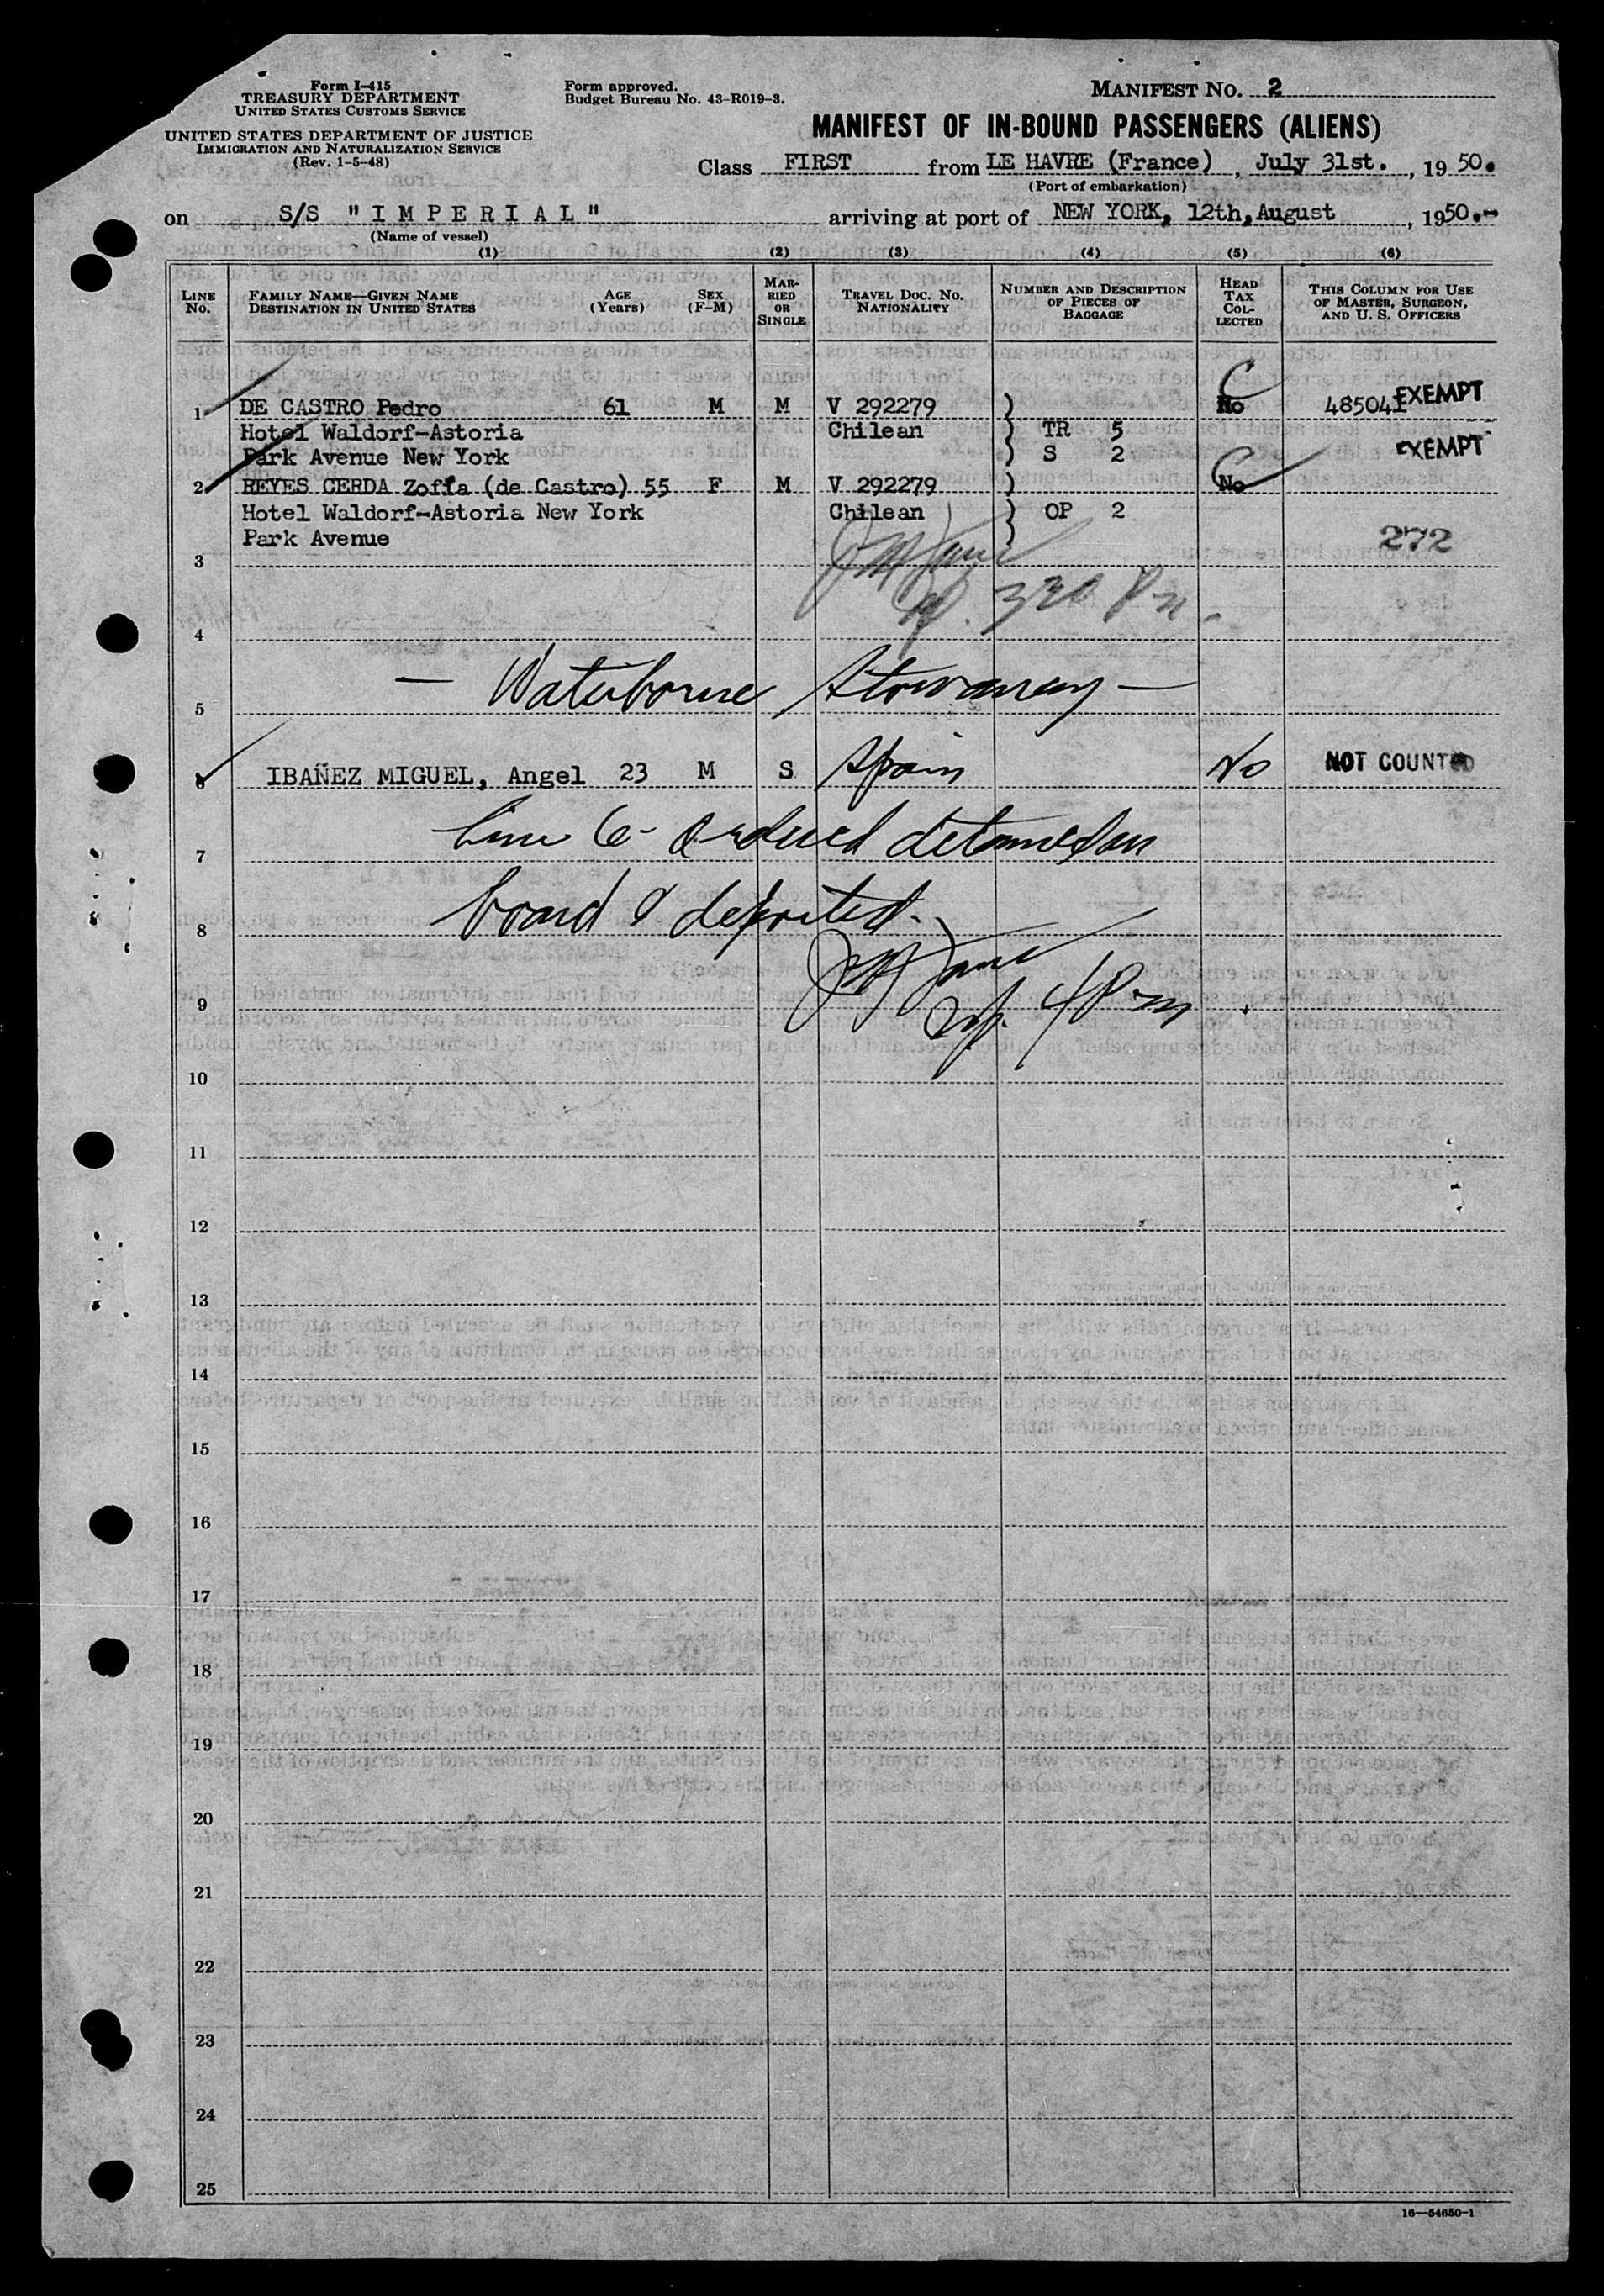 Form I-415
TREASURY DEPARTMENT
UNITED STATES CUSTOMS SERVICE
UNITED STATES DEPARTMENT OF JUSTICE
IMMIGRATION AND NATURALIZATION SERVICE
(Rev. 1-5-48)
Form approved.
Budget Bureau No. 43-R019-3.
MANIFEST NO. 2
MANIFEST OF IN-BOUND PASSENGERS (ALIENS)
Class FIRST from LE HAVRE (France), July 31st., 1950.
(Port of embarkation)
on S/S "IMPERIAL" arriving at port of NEW YORK, 12th, August, 1950.-
(Name of vessel)
(1) (2) (3) (4) (5) (6)
LINE No. FAMILY NAME—GIVEN NAME DESTINATION IN UNITED STATES AGE (Years) SEX (F-M) MARRIED OR SINGLE TRAVEL DOC. NO. NATIONALITY NUMBER AND DESCRIPTION OF PIECES OF BAGGAGE HEAD TAX COLLECTED THIS COLUMN FOR USE OF MASTER, SURGEON, AND U. S. OFFICERS
1 DE CASTRO Pedro 61 M M V 292279 ) No 485041 EXEMPT
Hotel Waldorf-Astoria Chilean ) TR 5
Park Avenue New York ) S 2 EXEMPT
2 REYES CERDA Zofia (de Castro) 55 F M V 292279 ) No
Hotel Waldorf-Astoria New York Chilean ) OP 2
Park Avenue ) 272
3
4
5 — Waterborne Stowaway —
6 IBAÑEZ MIGUEL, Angel 23 M S Spain No NOT COUNTED
7 Line 6- Ordered detained on
8 board & deported.
9 4 Pm
10
11
12
13
14
15
16
17
18
19
20
21
22
23
24
25
16—54650-1